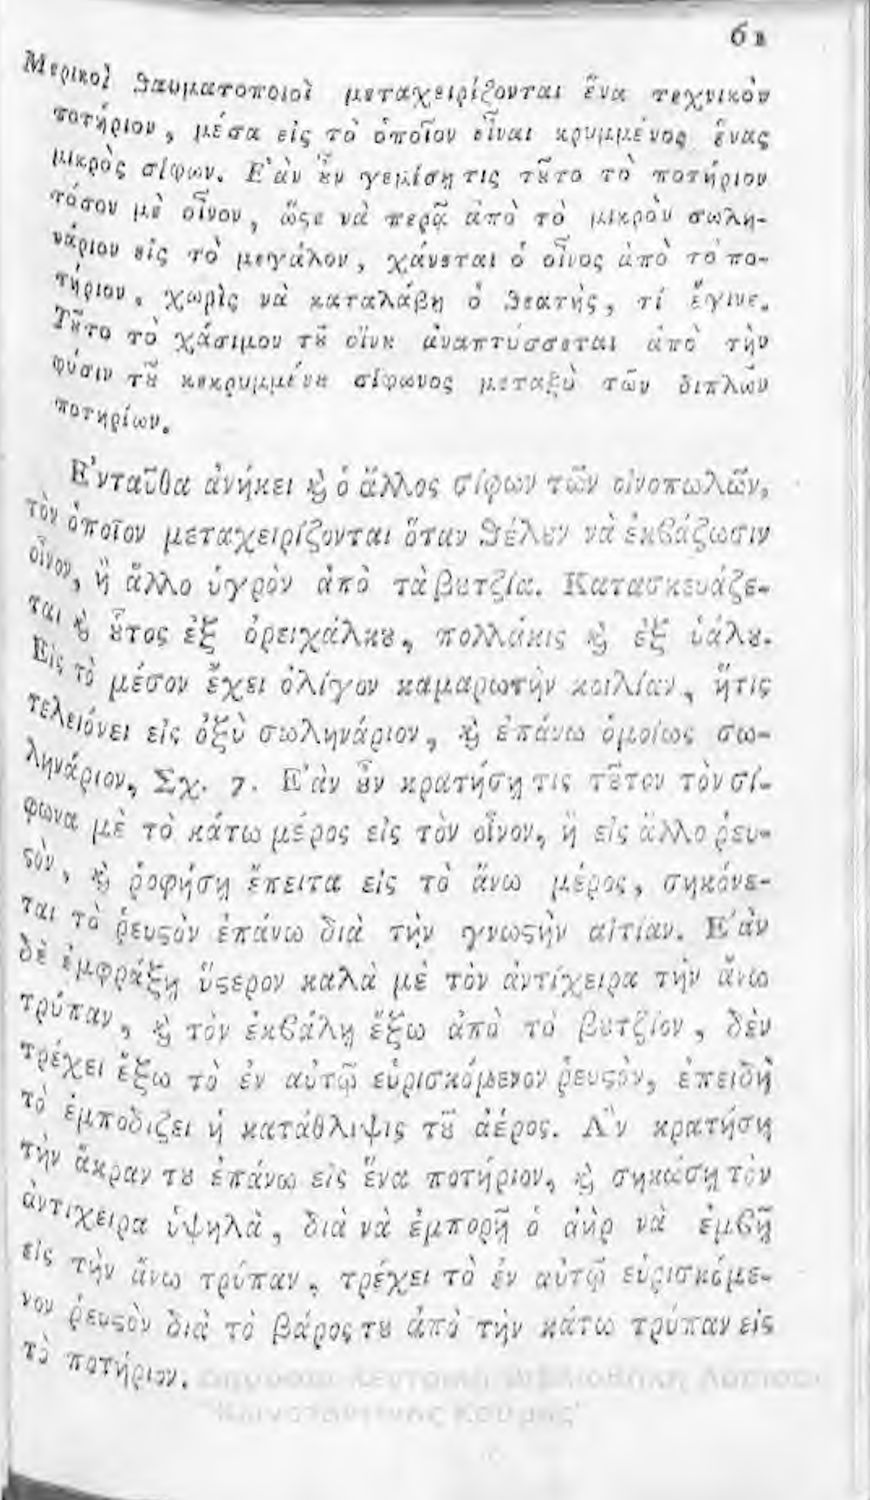 61
Μερικοὶ θαυματοποιοὶ μεταχειρίζονται ἕνα τεχνικὸν
ποτήριον, μέσα εἰς τὸ ὁποῖον εἶναι κρυμμένος ἕνας
μικρὸς σίφων. Ἐὰν ȣ̓͂ν γεμίσῃ τις τȣ͂το τὸ ποτήριον
τόσον μὲ οἶνον, ὥϛε νὰ περᾷ ἀπὸ τὸ μικρὸν σωλη-
νάριον εἰς τὸ μεγάλον, χάνεται ὁ οἶνος ἀπὸ τὸ πο-
τήριον, χωρὶς νὰ καταλάβῃ ὁ θεατὴς, τί ἔγινε.
Τȣ͂το τὸ χάσιμον τȣ͂ οἴνȣ ἀναπτύσσεται ἀπὸ τὴν
φύσιν τȣ͂ κεκρυμμένȣ σίφωνος μεταξὺ τῶν διπλῶν
ποτηρίων.
Ἐνταῦθα ἀνήκει ϗ̀ ὁ ἄλλος σίφων τῶν οἰνοπωλῶν,
τὸν ὁποῖον μεταχειρίζονται ὅταν θέλȣν νὰ ἐκβάζωσιν
οἶνον, ἢ ἄλλο ὑγρὸν ἀπὸ τὰ βȣτζία. Κατασκευάζε-
ται ϗ̀ ȣ̔͂τος ἐξ ὀρειχάλκȣ, πολλάκις ϗ̀ ἐξ ὑάλȣ.
Εἰς τὸ μέσον ἔχει ὀλίγον καμαρωτὴν κοιλίαν, ἥτις
τελειόνει εἰς ὀξὺ σωληνάριον, ϗ̀ ἐπάνω ὁμοίως σω-
ληνάριον, Σχ. 7. Ἐὰν ȣ̓͂ν κρατήσῃ τις τȣ͂τον τὸν σί-
φωνα μὲ τὸ κάτω μέρος εἰς τὸν οἶνον, ἢ εἰς ἄλλο ῥευ-
ϛὸν, ϗ̀ ῥοφήσῃ ἔπειτα εἰς τὸ ἄνω μέρος, σηκόνε-
ται τὸ ῥευϛὸν ἐπάνω διὰ τὴν γνωϛὴν αἰτίαν. Ἐὰν
δὲ ἐμφράξῃ ὕϛερον καλὰ μὲ τὸν ἀντίχειρα τὴν ἄνω
τρύπαν, ϗ̀ τὸν ἐκβάλῃ ἔξω ἀπὸ τὸ βȣτζίον, δὲν
τρέχει ἔξω τὸ ἐν αὐτῷ εὑρισκόμενον ῥευϛὸν, ἐπειδὴ
τὸ ἐμποδιζει ἡ κατάθλιψις τȣ͂ ἀέρος. Ἂν κρατήσῃ
τὴν ἄκραν τȣ ἐπάνω εἰς ἕνα ποτήριον, ϗ̀ σηκώσῃ τὸν
ἀντιχειρα ὑψηλὰ, διὰ νὰ ἐμπορῇ ὁ ἀὴρ νὰ ἐμβῇ
εἰς τὴν ἄνω τρύπαν, τρέχει τὸ ἐν αὐτῷ εὑρισκόμε-
νον ῥευϛὸν διὰ τὸ βάρος τȣ ἀπὸ τὴν κάτω τρύπαν εἰς
τὸ ποτήριον.
Δημόσια Κεντρική Βιβλιοθήκη Λάρισας
"Κωνσταντίνος Κούμας"